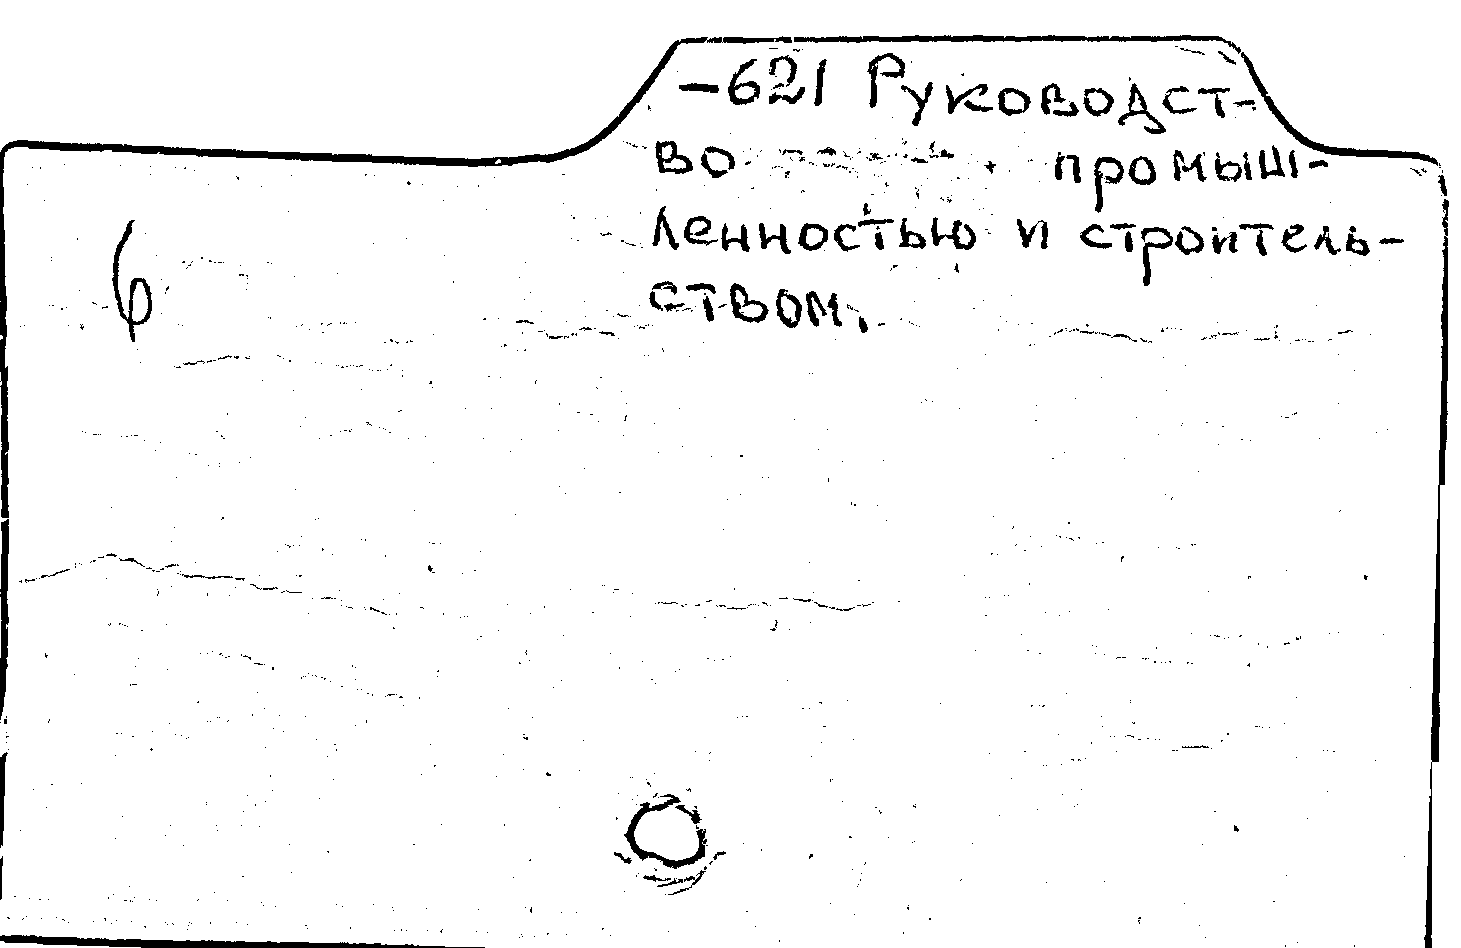 -621 Руководст-
во промыш-
ленностью и строитель-
ством.
6